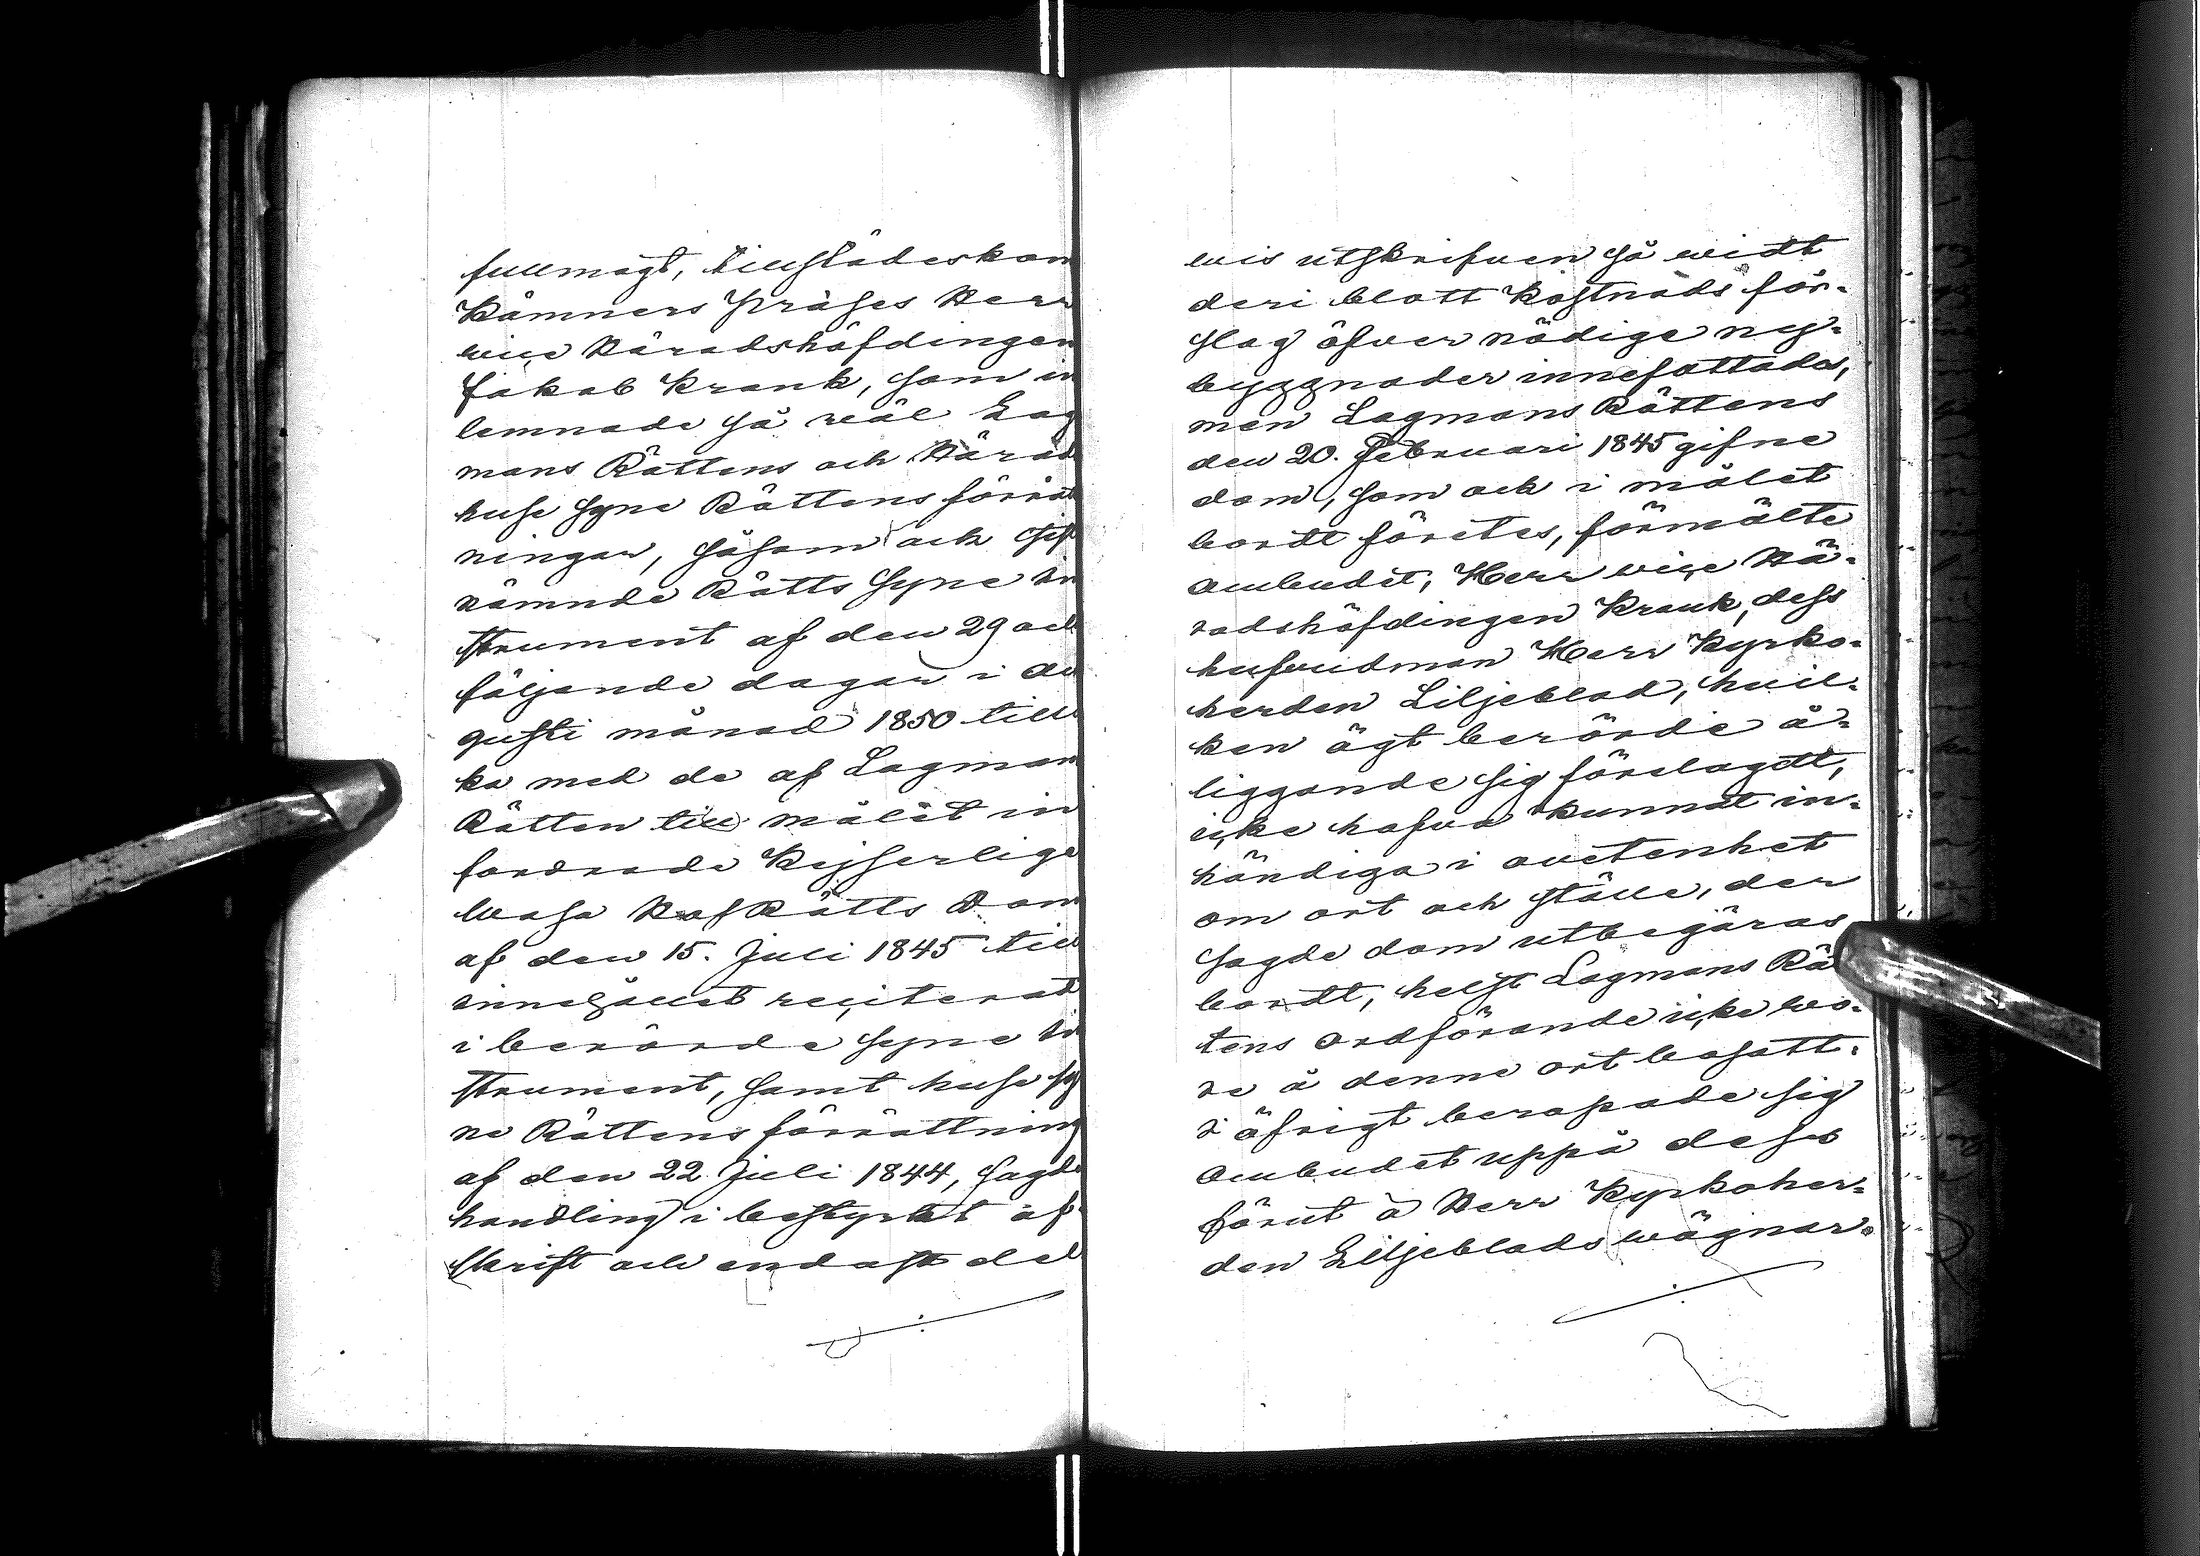 fullmagt, tillstädeskom
Kämners Präses Herr
vice Häradshöfdingen
Jakob Krank, som in
lemnade så wäl Lag
mans Rättens och Härad
huse syne Rättens förrät
ningar, såsom ock sist
nämnde Rätts Syne in
strument af den 29 och
följande dagar i Au
gusti månad 1850 till
ka med de af Lagman
Rätten till målet in
fordrade Kejserlige
Wasa HofRätts Dom
af den 15. Juli 1845 till
innehållet reciterad
i berörde syne in
strument, samt huse sy
ne Rättens förrättning
af den 22 Juli 1844, sagde
handling i bestyrkt af
skrift och endast del
wis utskrifven så widt
deri blott Kostnads för-
slag öfver nödige ny-
byggnader innefattades,
men Lagmans Rättens
den 20. Februari 1845 gifne
dom, som ock i målet
bordt företes, förmälte
ombudet, Herr vice Hä-
radshöfdingen Krank, dess
hufvudman Herr Kyrko-
herden Liljeblad, hvil-
ken ägt berörde å-
liggande sig förelagdt,
icke hafva kunnat in-
händiga i ovetenhet
om ort och ställe, der
sagde dom utbegäras
bordt, helst Lagmans Rä
tens Ordförande icke wo-
re å denne ort bosatt.
I öfrigt beropade sig
Ombudet uppå dess
förut å Herr Kyrkoher-
den Liljeblads wägnar